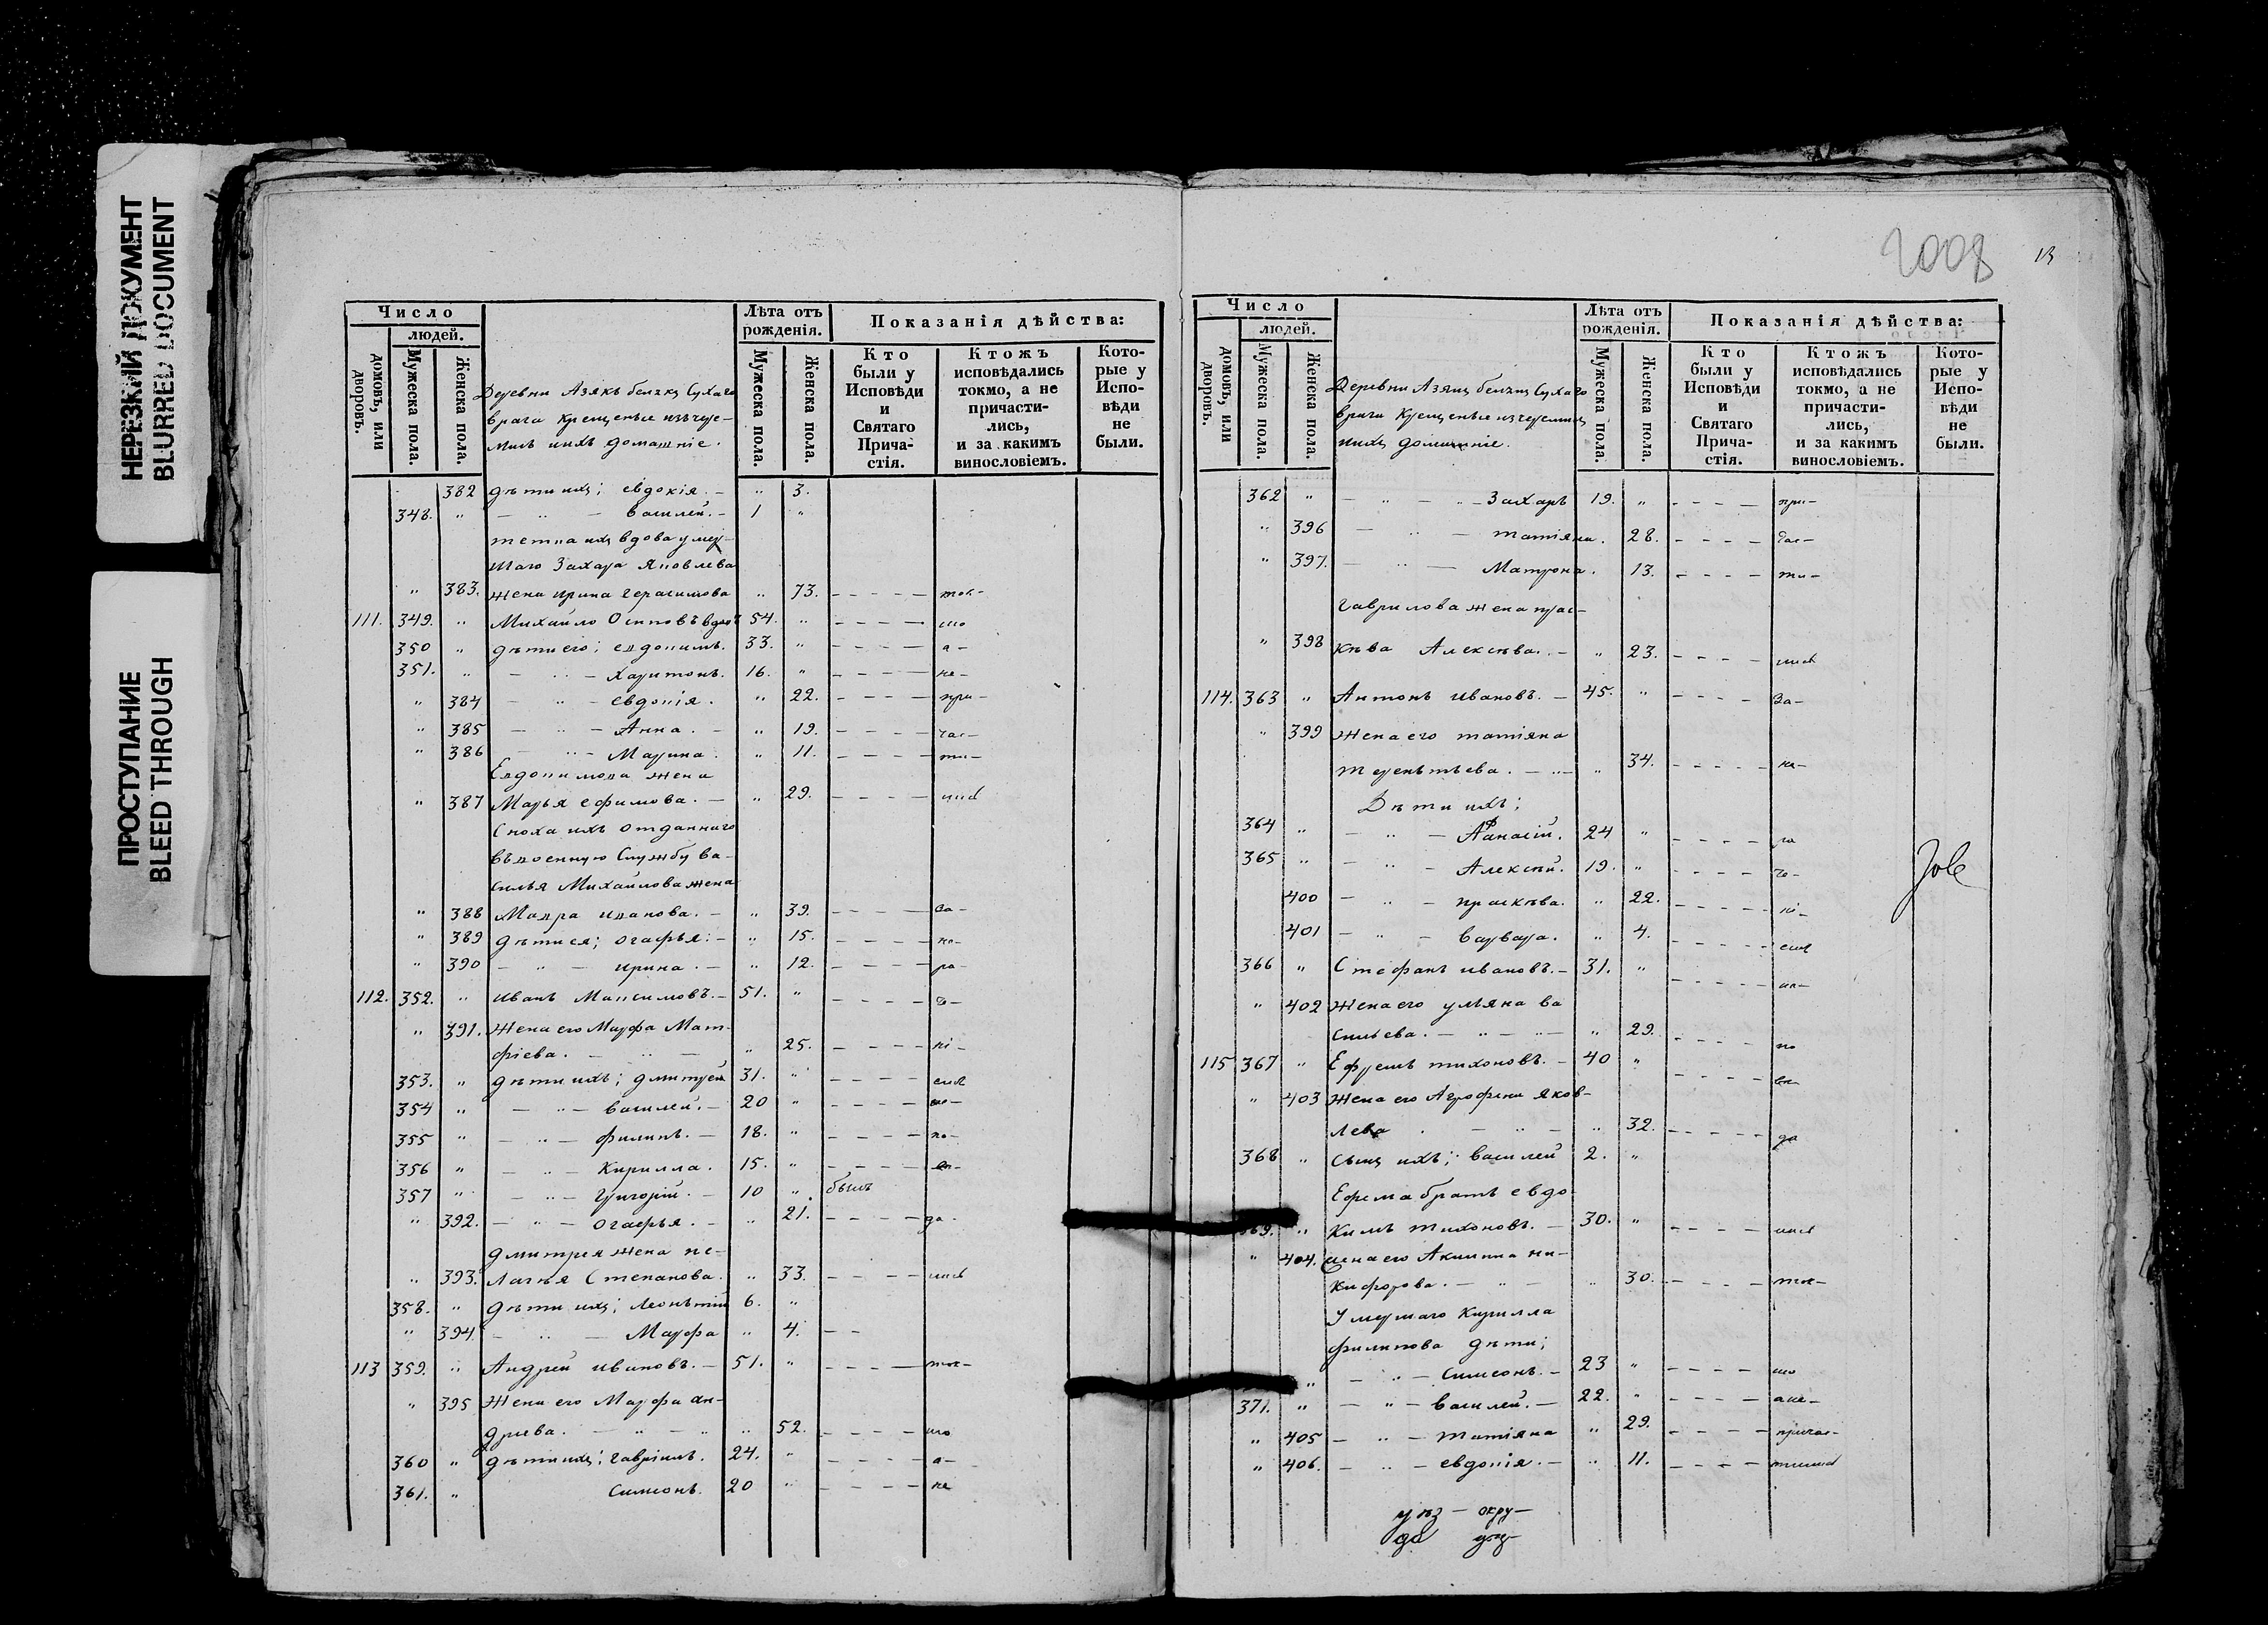 НЕРЕЗКИЙ ДОКУМЕНТ
BLURRED DOCUMENT
ПРОСТУПАНИЕ
BLEED THROUGH
Число
людей.
домовъ, или дворовъ.
Мужеска пола.
Женска пола.
врага крещеные изъ чере-
мисъ ихъ домашніе.
Лѣта отъ рожденія.
Мужеска пола.
Женска пола.
Показанія дѣйства:
Кто были у Исповѣди и Святаго Прича-стія.
Ктожъ исповѣдались токмо, а не причасти-лись, и за какимъ винословіемъ.
Кото-рые у Испо-вѣди не были.
382 дѣти ихъ; евдокія. — " 3.
348. " — " — василей. — 1 "
тетка ихъ вдова умер-
шаго Захара Яковлева
" 383. жена ирина герасимова " 73. - - - - - ток-
111. 349. " Михайло Осиповъ вдов 54. " - - - - мо
350 " дѣти его; евдокимъ. 33. " - - - - а -
351. " — " — Харитонъ. 16. " - - - - не-
" 384 — " — евдокія. " 22. - - - - при-
" 385 — " — Анна. — " 19. - - - - час-
" 386 — " — Марина. " 11. - - - - ти-
Евдокимова жена
" 387 Марья ефимова. — " 29. - - - - лись
Сноха ихъ отданнаго
въ военную Службу Ва-
силья Михайлова жена
" 388 Мавра иванова. — " 39. - - - - за-
" 389 дѣти ея; огафья. — " 15. - - - - не-
" 390 — " — ирина. — " 12. - - - - ра-
112. 352. " иванъ Максимовъ. — 51. " - - - - че-
" 391. Жена его Марфа Мат-
фіева. — " — " 25. - - - - ні-
353. " дѣти ихъ; дмитрей 31. " - - - - емъ
354 " — " — василей. — 20 " - - - -
355 " — " — филипъ. — 18. " - - - - по-
356 " — " — Кирилла. 15. " - - - -
357 " — " — Григорій. — 10 " былъ
" 392. — " — огафья. — " 21. - - - - да-
дмитрея жена пе-
" 393. лагѣя Степанова. " 33. - - - - лись
358. " дѣти ихъ; Леонтій 6. "
" 394. — " — Марфа " 4. - -
113 359. " Андрей ивановъ. — 51. " - - - - ток-
" 395 Жена его Марфа ан-
дреева. — " — " " 52. - - - - мо
360 " дѣти ихъ; гавріилъ. 24. " - - - - а-
361. " Симеонъ. 20 " - - - - не
2008
13
Число
людей.
домовъ, или дворовъ.
Мужеска пола.
Женска пола.
врага крещеные изъ черемисъ
ихъ домашніе.
Лѣта отъ рожденія.
Мужеска пола.
Женска пола.
Показанія дѣйства:
Кто были у Исповѣди и Святаго Прича-стія.
Ктожъ исповѣдались токмо, а не причасти-лись, и за какимъ винословіемъ.
Кото-рые у Испо-вѣди не были.
362 " — " — " — Захаръ 19. " - - - - при-
" 396 — " — татіяна. 28. - - - - час-
" 397. — " — Матрона. 13. - - - - ти-
Гаврилова жена прас-
" 398 кѣва Алексѣва. — " 23. - - - - лись
114. 363 " Антонъ ивановъ. — 45. " - - - - за-
" 399 Жена его татіяна
терентьева. — " — " 34. - - - - не-
Дѣти ихъ;
364 " — " — Афанасій. 24 " - - - - ра
365 " — " — Алексѣй. 19. " - - - - че-
400 — " — праскѣва. " 22. - - - - ні-
401 — " — варвара. " 4. - - - - емъ
366 " Стефанъ ивановъ. — 31. " - - - -
" 402 Жена его ульяна ва
сильева. — " — " — " 29. - - - - по
115 367 " Ефремъ тихоновъ. — 40 " - - - -
" 403 Жена его Агрофена яков-
лева. — " — " 32. - - - - да
368 " Сынъ ихъ; василей 2. "
Ефрема братъ евдо-
369. " кимъ тихоновъ. — 30. " - - - - лись
" 404. жена его Акилина ни-
кифорова. — " — " 30. - - - - ток-
Умершаго Кирилла
филипова дѣти;
" — " — Симеонъ. — 23 " - - - - мо
371. " — " — василей. — 22. " - - - - а не-
" 405 — " — татіяна " 29. - - - - причас-
" 406. — " — евдокія. — " 11. - - - - тились